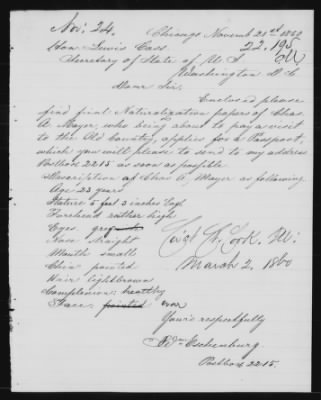 Nov: 24.
Chicago Novemb 21st 1860
Hon Lewis Cass. 22,195
Secretary of State of U S
Washington D. C
Dear Sir,
Enclosed please
find final Naturalization papers of Chas.
A. Mayer, who being about to pay a visit
to the Old Country, applies for a Passport,
which you will please to send to my address
Postbox 2215 as soon as possible.
Description of Chas A. Mayer as following
Age: 23 years
Stature 5 feet 3 inches Engl
Forehead rather high
Eyes grey
Nose straight
Mouth small
Chin pointed
March 2, 1860
Hair lightbrown
Complexion: healthy
Face: pointed oval
Yours respectfully
Edm Eschenburg.
Postbox 2215.